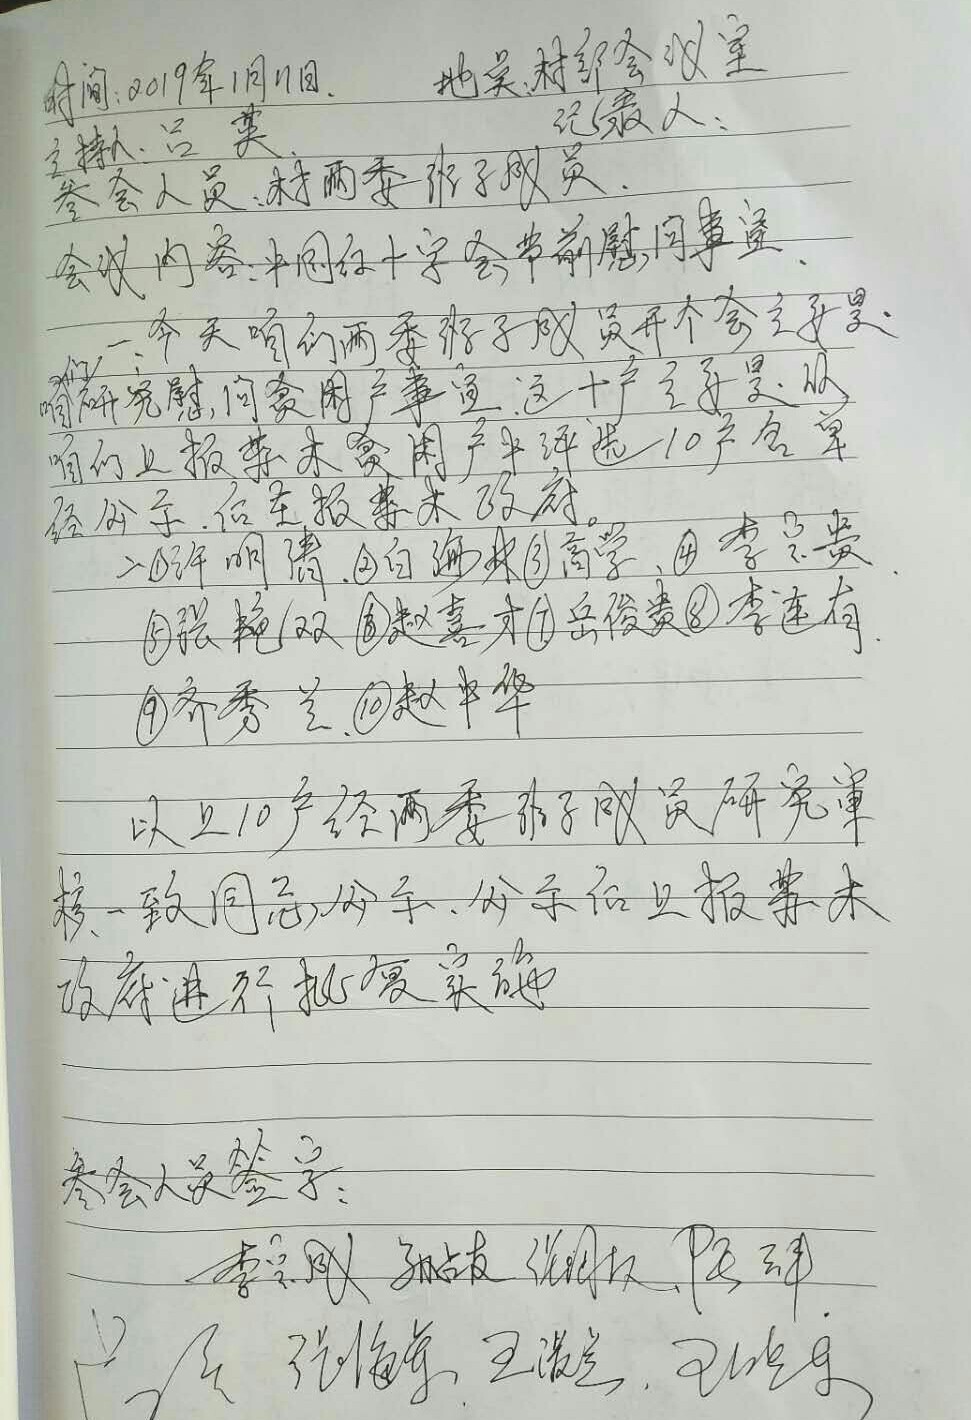 时间:2019年1月11日. 地点:村部会议室
主持人:吕英. 记录人:
参会人员:村两委班子成员.
会议内容:中国红十字会节前慰问事宜.
一:今天咱们两委班子成员开个会主要是
咱们研究慰问贫困户事宜.这十户主要是从
咱们上报苏木贫困户中评选10户名单
经公示.后在报苏木政府。
二①许明清.②白海林③商学、④李宗贵.
⑤张艳双⑥赵喜才⑦岳俊贵⑧李连有.
⑨齐秀兰、⑩赵中华
以上10户经两委班子成员研究审
核、一致同意公示、公示后上报苏木
政府进行批复实施
参会人员签字:
李宗成 孙占友
张海军.